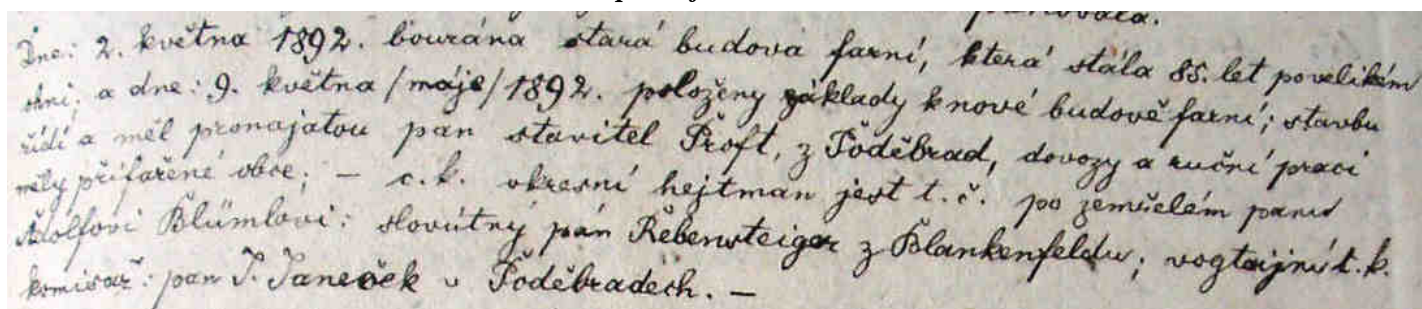 panovala.
Dne: 2. května 1892. bourána stará budova farní, která stála 85. let po velikém
ohni; a dne: 9. května /máje/ 1892. položeny základy k nové budově farní; stavbu
řídí a měl pronajatou pan stavitel Proft, z Poděbrad, dovozy a ruční praci
měly přifařené obce; — c. k. okresní hejtman jest t. č. po zemřelém panu
Adolfovi Blümlovi: slovútný pán Řebensteiger z Blankenfeldu; c. k.
komisař: pan J. Janeček v Poděbradech. —